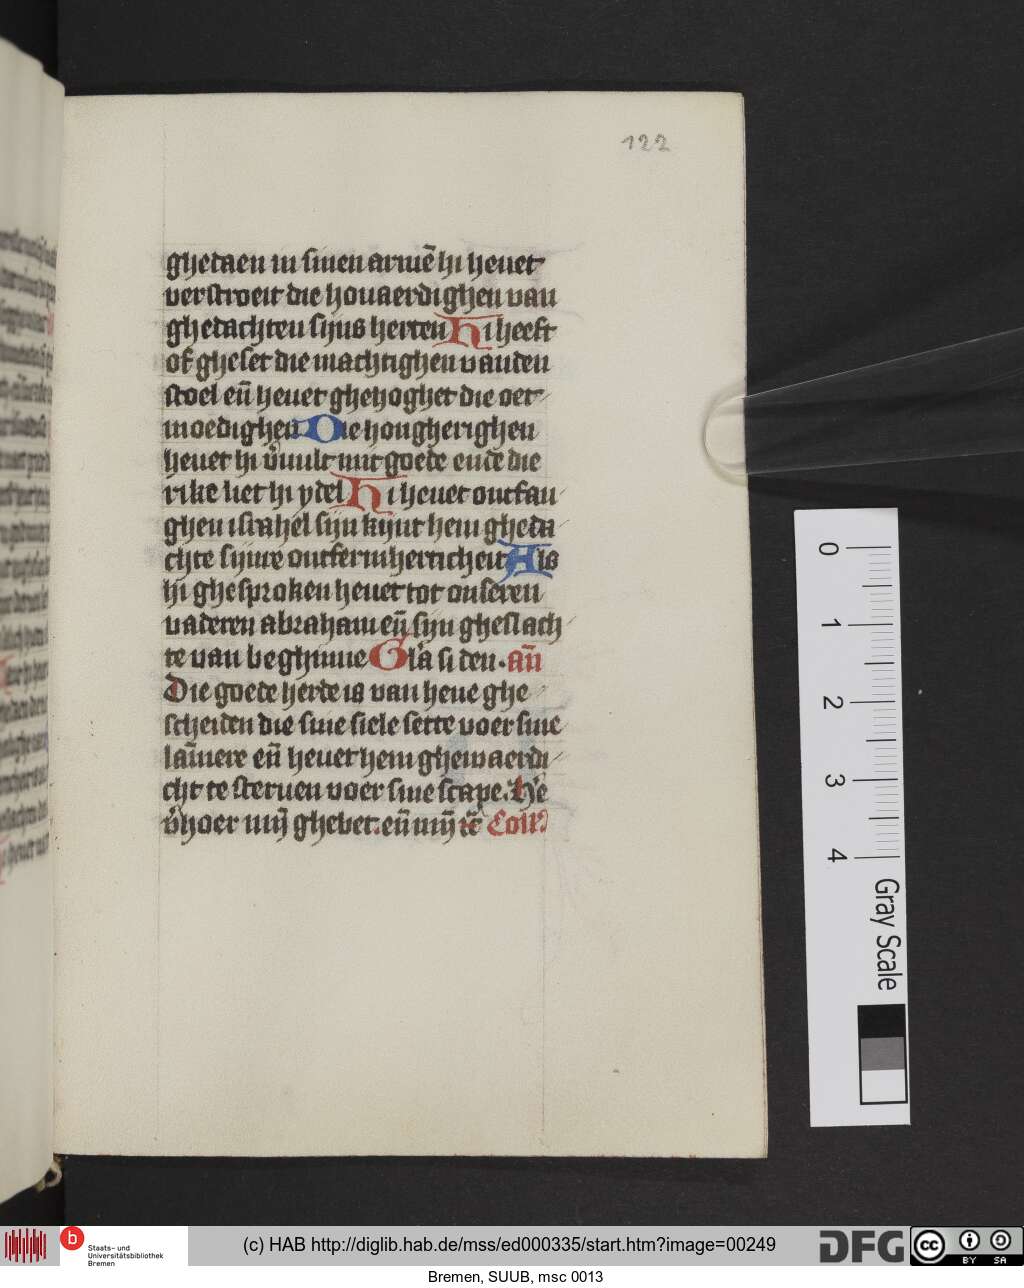 122
ghedaen in sinen armē hi heuet
verstroeit die houaerdighen van
ghedachten sijns herten Hi heeft
of gheset die machtighen vanden
stoel eñ heuet ghehoghet die oet
moedighen Die hongherighen
heuet hi v̄uult mit goede ende die
rike liet hi ydel Hi heuet ontfan
ghen israhel sijn kijnt hem gheda
chte sijnre ontfermherticheit Als
hi ghesproken heuet tot onseren
vaderen abraham eñ sijn gheslach
te van beghinne Gl'a si den. an̄
Die goede herde is van heue ghe
scheiden die sine siele sette voer sine
lam̄nere eñ heuet hem ghewaerdi
cht te steruen voer sine scape. He
v̄hoer mijn ghebet. eñ mijn
0
1
2
3
4
Gray Scale
b
Staats- und
Universitätsbibliothek
Bremen
(c) HAB http://diglib.hab.de/mss/ed000335/start.htm?image=00249
DFG
cc
BY SA
Bremen, SUUB, msc 0013